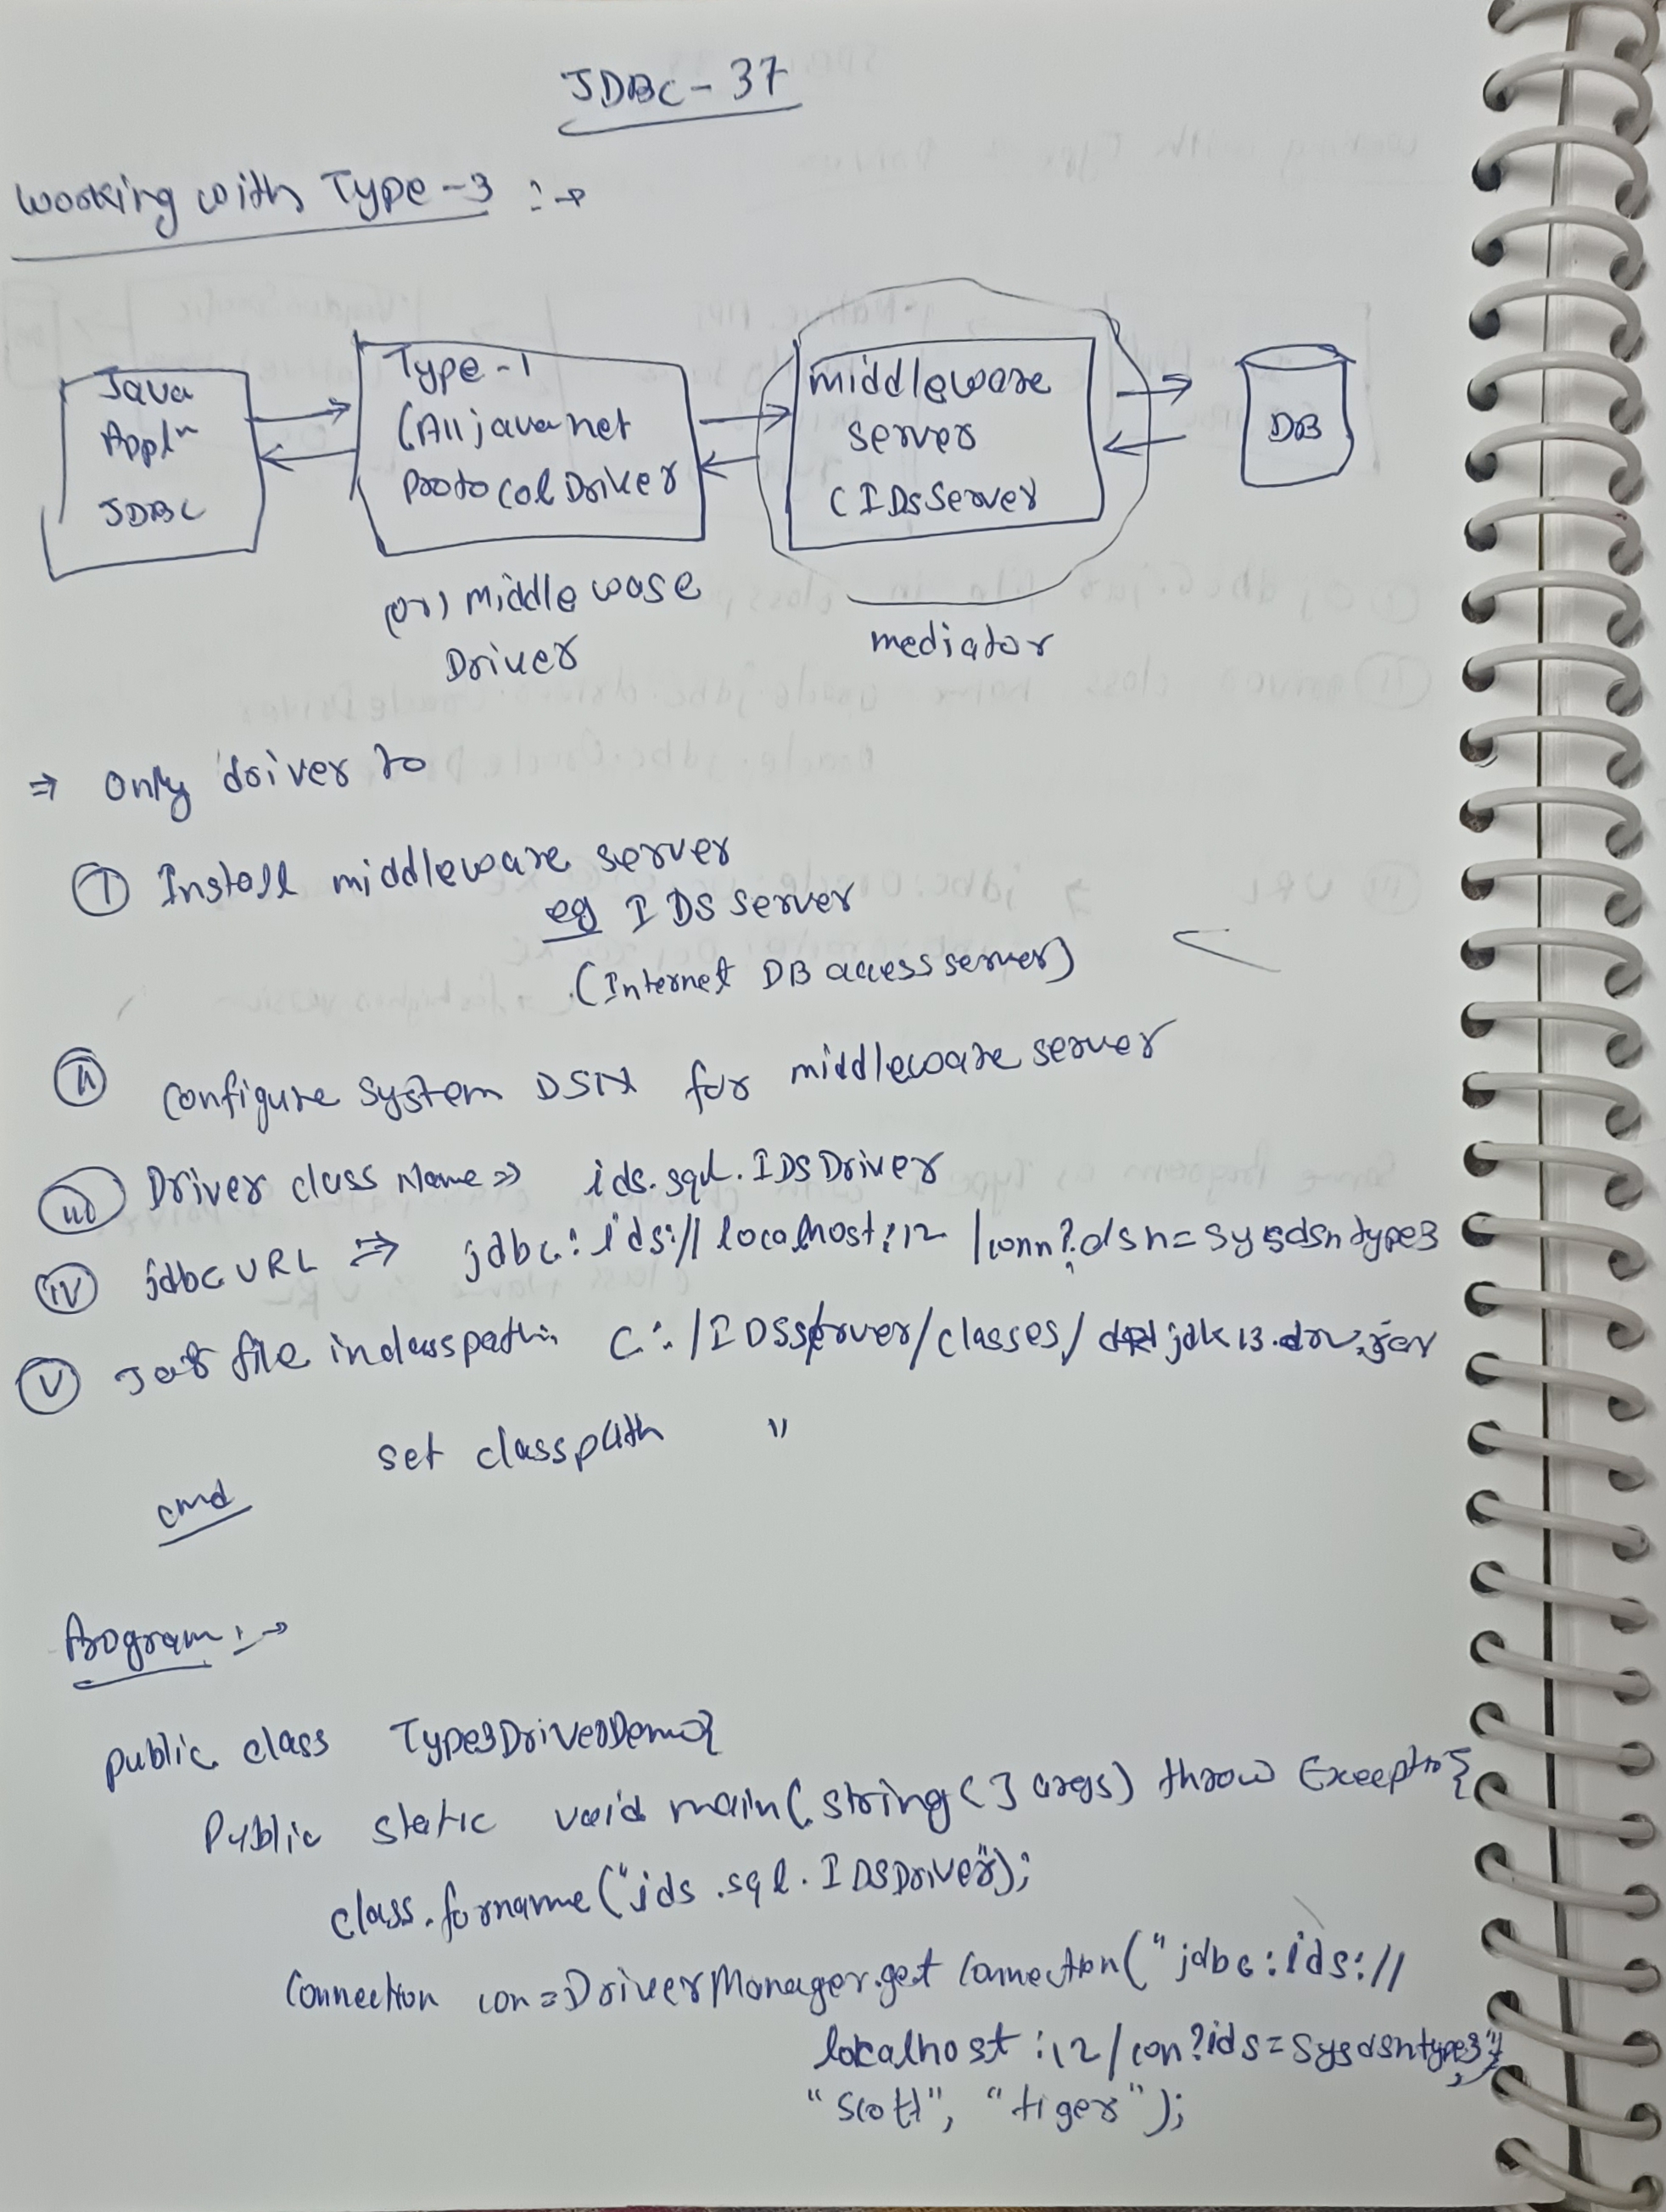 JDBC - 37
Working with Type-3 :→
Java
Appln
JDBC
Type-1
(All java net
Protocol Driver
(or) middleware
Driver
middleware
server
(IDsServer
mediator
DB
⇒ Only driver to
(I) Install middleware server
eg IDS server
(Internet DB access server)
(II) Configure System DSN for middleware server
(III) Driver class Name ⇒ ids.sql.IDSDriver
(IV) jdbc URL ⇒ jdbc:ids://localhost:12/conn?dsn=sysdsntype3
(V) Jar file in classpath: C:/IDSserver/classes/ jdk13.drv.jar
set classpath "
cmd
Program :→
public class Type3DriverDemo{
Public static void main(String[] args) throw Exceptio{
class.forname("ids.sql.IDSDriver");
Connection con=DriverManager.get Connection("jdbc:ids://
localhost:12/con?ids=sysdsntype3",
"scott", "tiger");